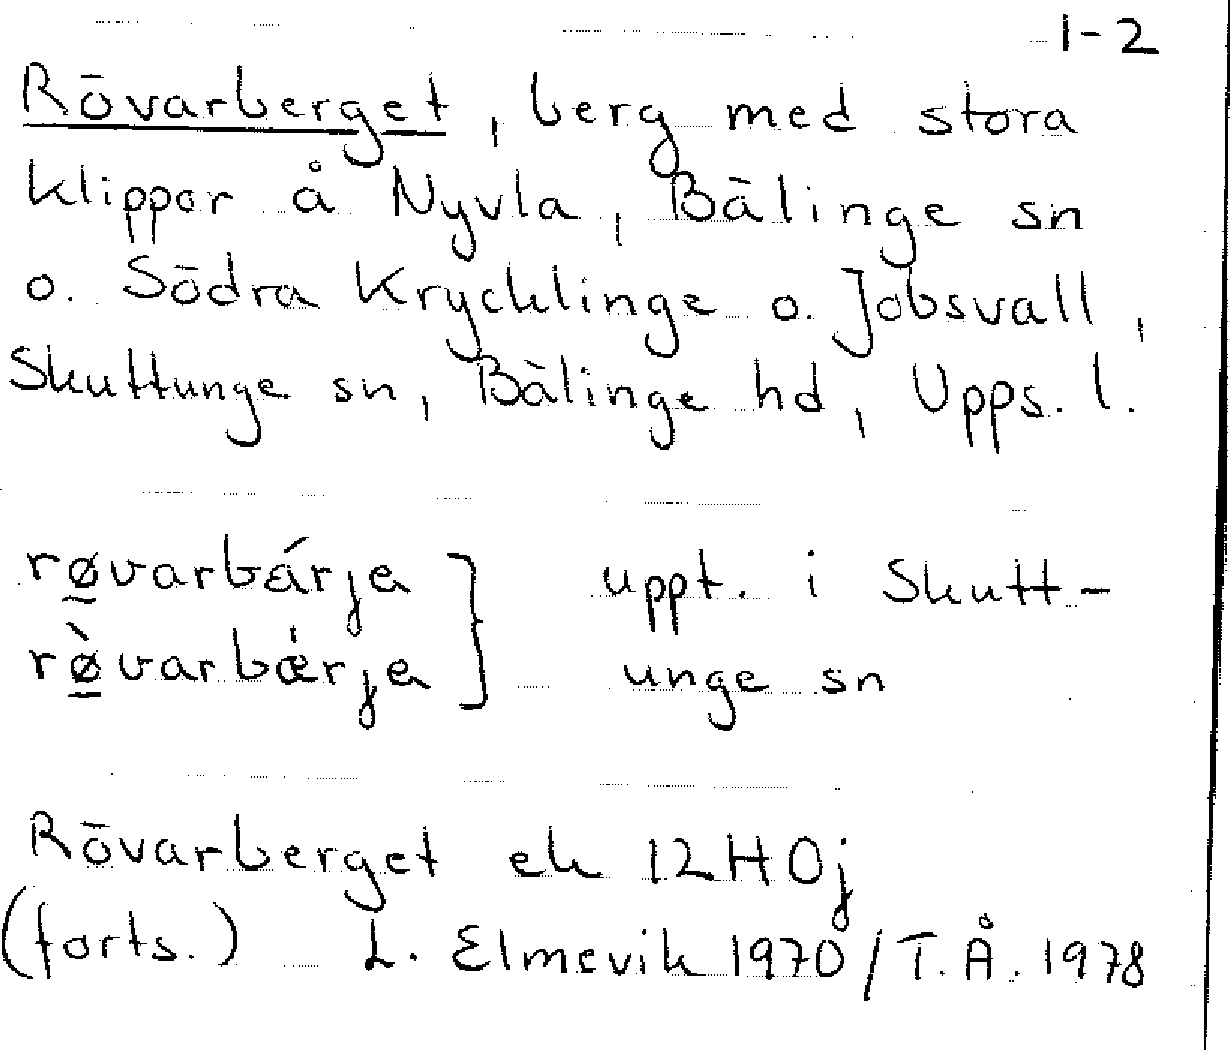 1-2
Rövarberget, berg med stora
klippor å Nyvla, Bälinge sn
o. Södra Krycklinge o. Jobsvall,
Skuttunge sn, Bälinge hd, Upps. l.
røvarbárja } uppt. i Skutt-
rø̀varbǽrja } unge sn
Rövarberget ek 12H0j
(forts.) L. Elmevik 1970 / T.Å. 1978